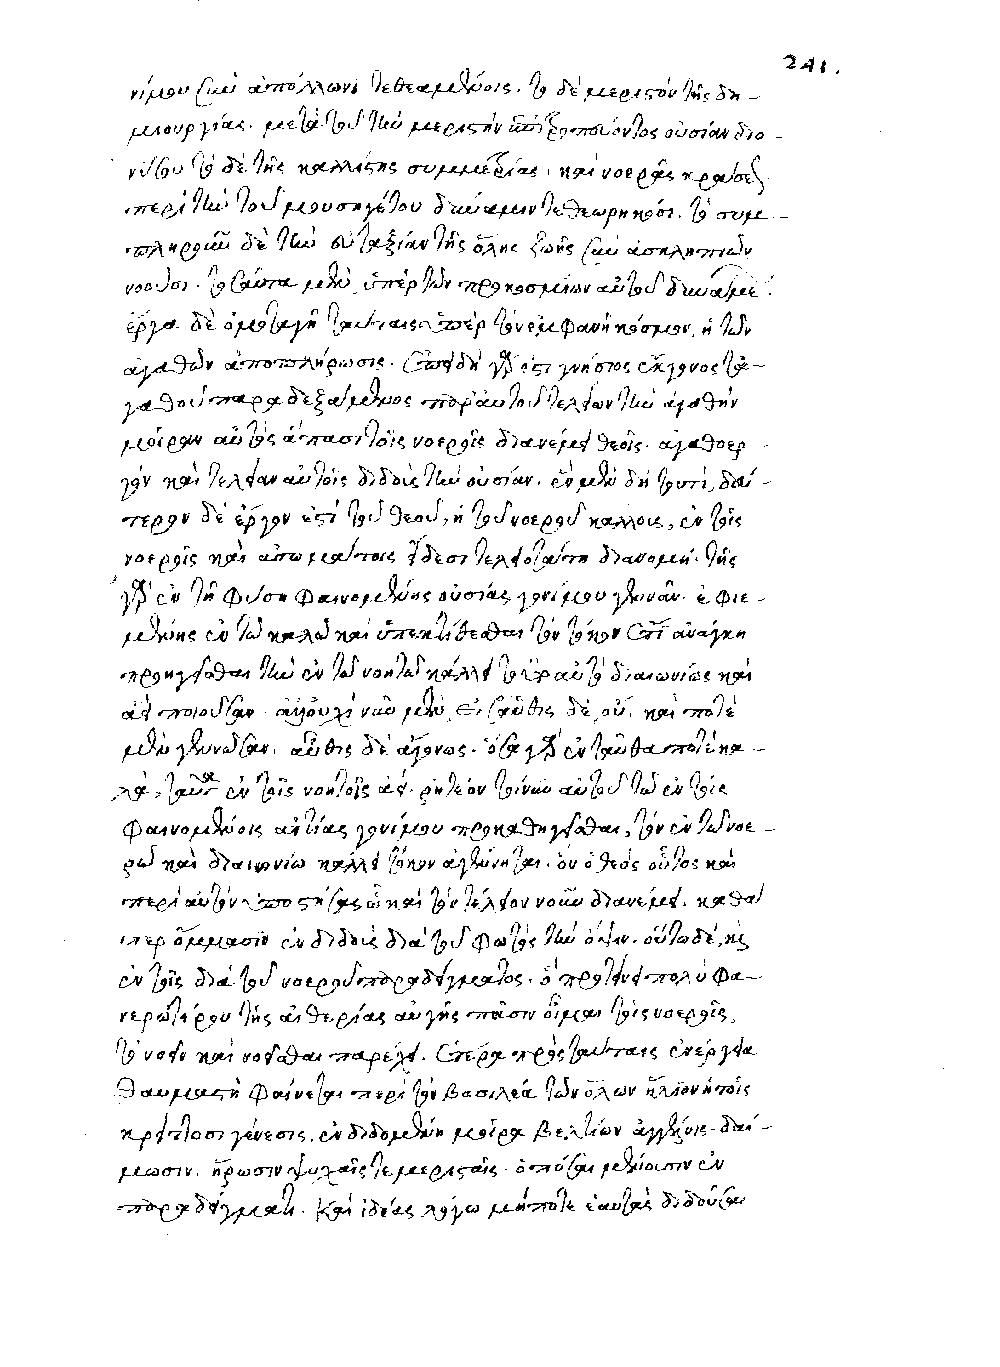 241.
νίμου σὺν ἀπόλλωνι τεθεαμένοις. τὸ δὲ μεριστὸν τῆς δη-
μιουργίας. μετὰ τοῦ τὴν μεριστὴν ἐπιτροπεύοντος οὐσίαν διο-
νύσου τὸ δὲ τῆς καλλίστης συμμετρίας, καὶ νοερᾶς κράσεως
περὶ τὴν τοῦ μουσηγέτου δύναμιν τεθεωρηκόσι. τὸ συμ-
πληροῦν δὲ τὴν εὐταξίαν τῆς ὅλης ζωῆς σὺν ἀσκληπιῶ
νοοῦσι. τοσαῦτα μὲν ὑπὲρ τῶν προκοσμίων αὐτοῦ δυνάμεων.
ἔργα δὲ ὁμοταγῆ ταύταις ὑπὲρ τὸν ἐμφανῆ κόσμον, ἡ τῶν
ἀγαθῶν ἀποπλήρωσις. Ἐπειδὴ γάρ ἐστι γνήσιος ἔκγονος τἀ-
γαθοῦ παραδεξάμενος παρ' αὐτοῦ τελείαν τὴν ἀγαθὴν
μοῖραν αὐτὸς ἅπασι τοῖς νοεροῖς διανέμει θεοῖς. ἀγαθοερ-
γὸν καὶ τελείαν αὐτοῖς διδοὺς τὴν οὐσίαν. ἓν μὲν δὴ τουτί, δεύ-
τερον δὲ ἔργον ἐστὶ τοῦ θεοῦ, ἡ τοῦ νοεροῦ κάλλους, ἐν τοῖς
νοεροῖς καὶ ἀσωμάτοις εἴδεσι τελειοτάτη διανομή. τῆς
γὰρ ἐν τῆ φύσει φαινομένης οὐσίας γονίμου γεννᾶν. ἐφιε-
μένης ἐν τῶ καλῶ καὶ ὑπεκτίθεσθαι τὸν τόκον ἔτι ἀνάγκη
προηγεῖσθαι τὴν ἐν τῶ νοητῶ κάλλει τοῦτο αὐτὸ διαιωνίως καὶ
ἀεὶ ποιοῦσαν ἀλλ' οὐχὶ νῦν μὲν, εἰσαῦθις δὲ οὔ. καὶ ποτὲ
μὲν γεννῶσαν. αὖθις δὲ ἄγονος. ὅσα γὰρ ἐνταῦθα ποτὲ κα-
λὰ, ταῦτα ἐν τοῖς νοητοῖς ἀεί. ῥητέον τοίνυν αὐτοῦ τῶ ἐν τοῖς
φαινομένοις αἰτίας γονίμου προκαθηγεῖσθαι, τὸν ἐν τῶ νοε-
ρῶ καὶ διαιωνίω κάλλει τόκον ἀγέννητον. ὃν ὁ θεὸς οὗτος καὶ
περὶ αὑτὸν ὑποστήσας ὧ καὶ τὸν τέλειον νοῦν διανέμει. καθά-
περ ὄμμασιν ἐνδιδοὺς διὰ τοῦ φωτὸς τὴν ὄψιν. οὕτω δὲ, καὶ
ἐν τοῖς διὰ τοῦ νοεροῦ παραδείγματος. ὃ προτείνει πολὺ φα-
νερώτερον τῆς αἰθερίας αὐγῆς πᾶσιν οἶμαι τοῖς νοεροῖς,
τὸ νοεῖν καὶ νοεῖσθαι παρέχει. Ἑτέρα πρὸς ταύταις ἐνέργεια
θαυμαστὴ φαίνεται περὶ τὸν βασιλέα τῶν ὅλων ἥλιον ἡ τοῖς
κρείττοσι γένεσις, ἐνδιδομένη μοῖρα βελτίων ἀγγέλοις. δαί-
μοσιν, ἥρωσιν ψυχαῖς τε μερισταῖς. ὁπόσαι μένουσιν ἐν
παραδείγματι. Καὶ ἰδέας λόγω μήποτε ἑαυτὰς διδοῦσαι